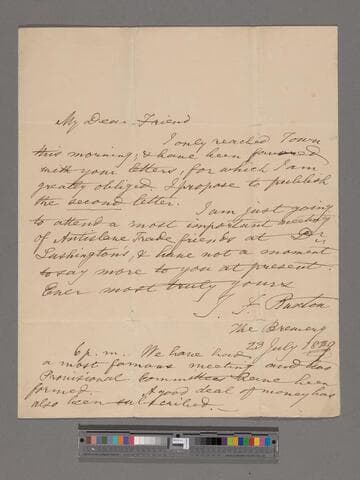 My Dear Friend
I only reached Town
this morning, & have been favoured
with your letters, for which I am
greatly obliged. I propose to publish
the second letter. I am just going
to attend a most important meeting
of Antislave Trade friends at Dr
Lushington's, & have not a moment
to say more to you at present
Ever most truly yours
T. F. Buxton
The Brewery
23 July 1839
6 p.m. We have had
a most famous meeting and two
Provisional Committees have been
formed. A good deal of money has
also been subscribed.